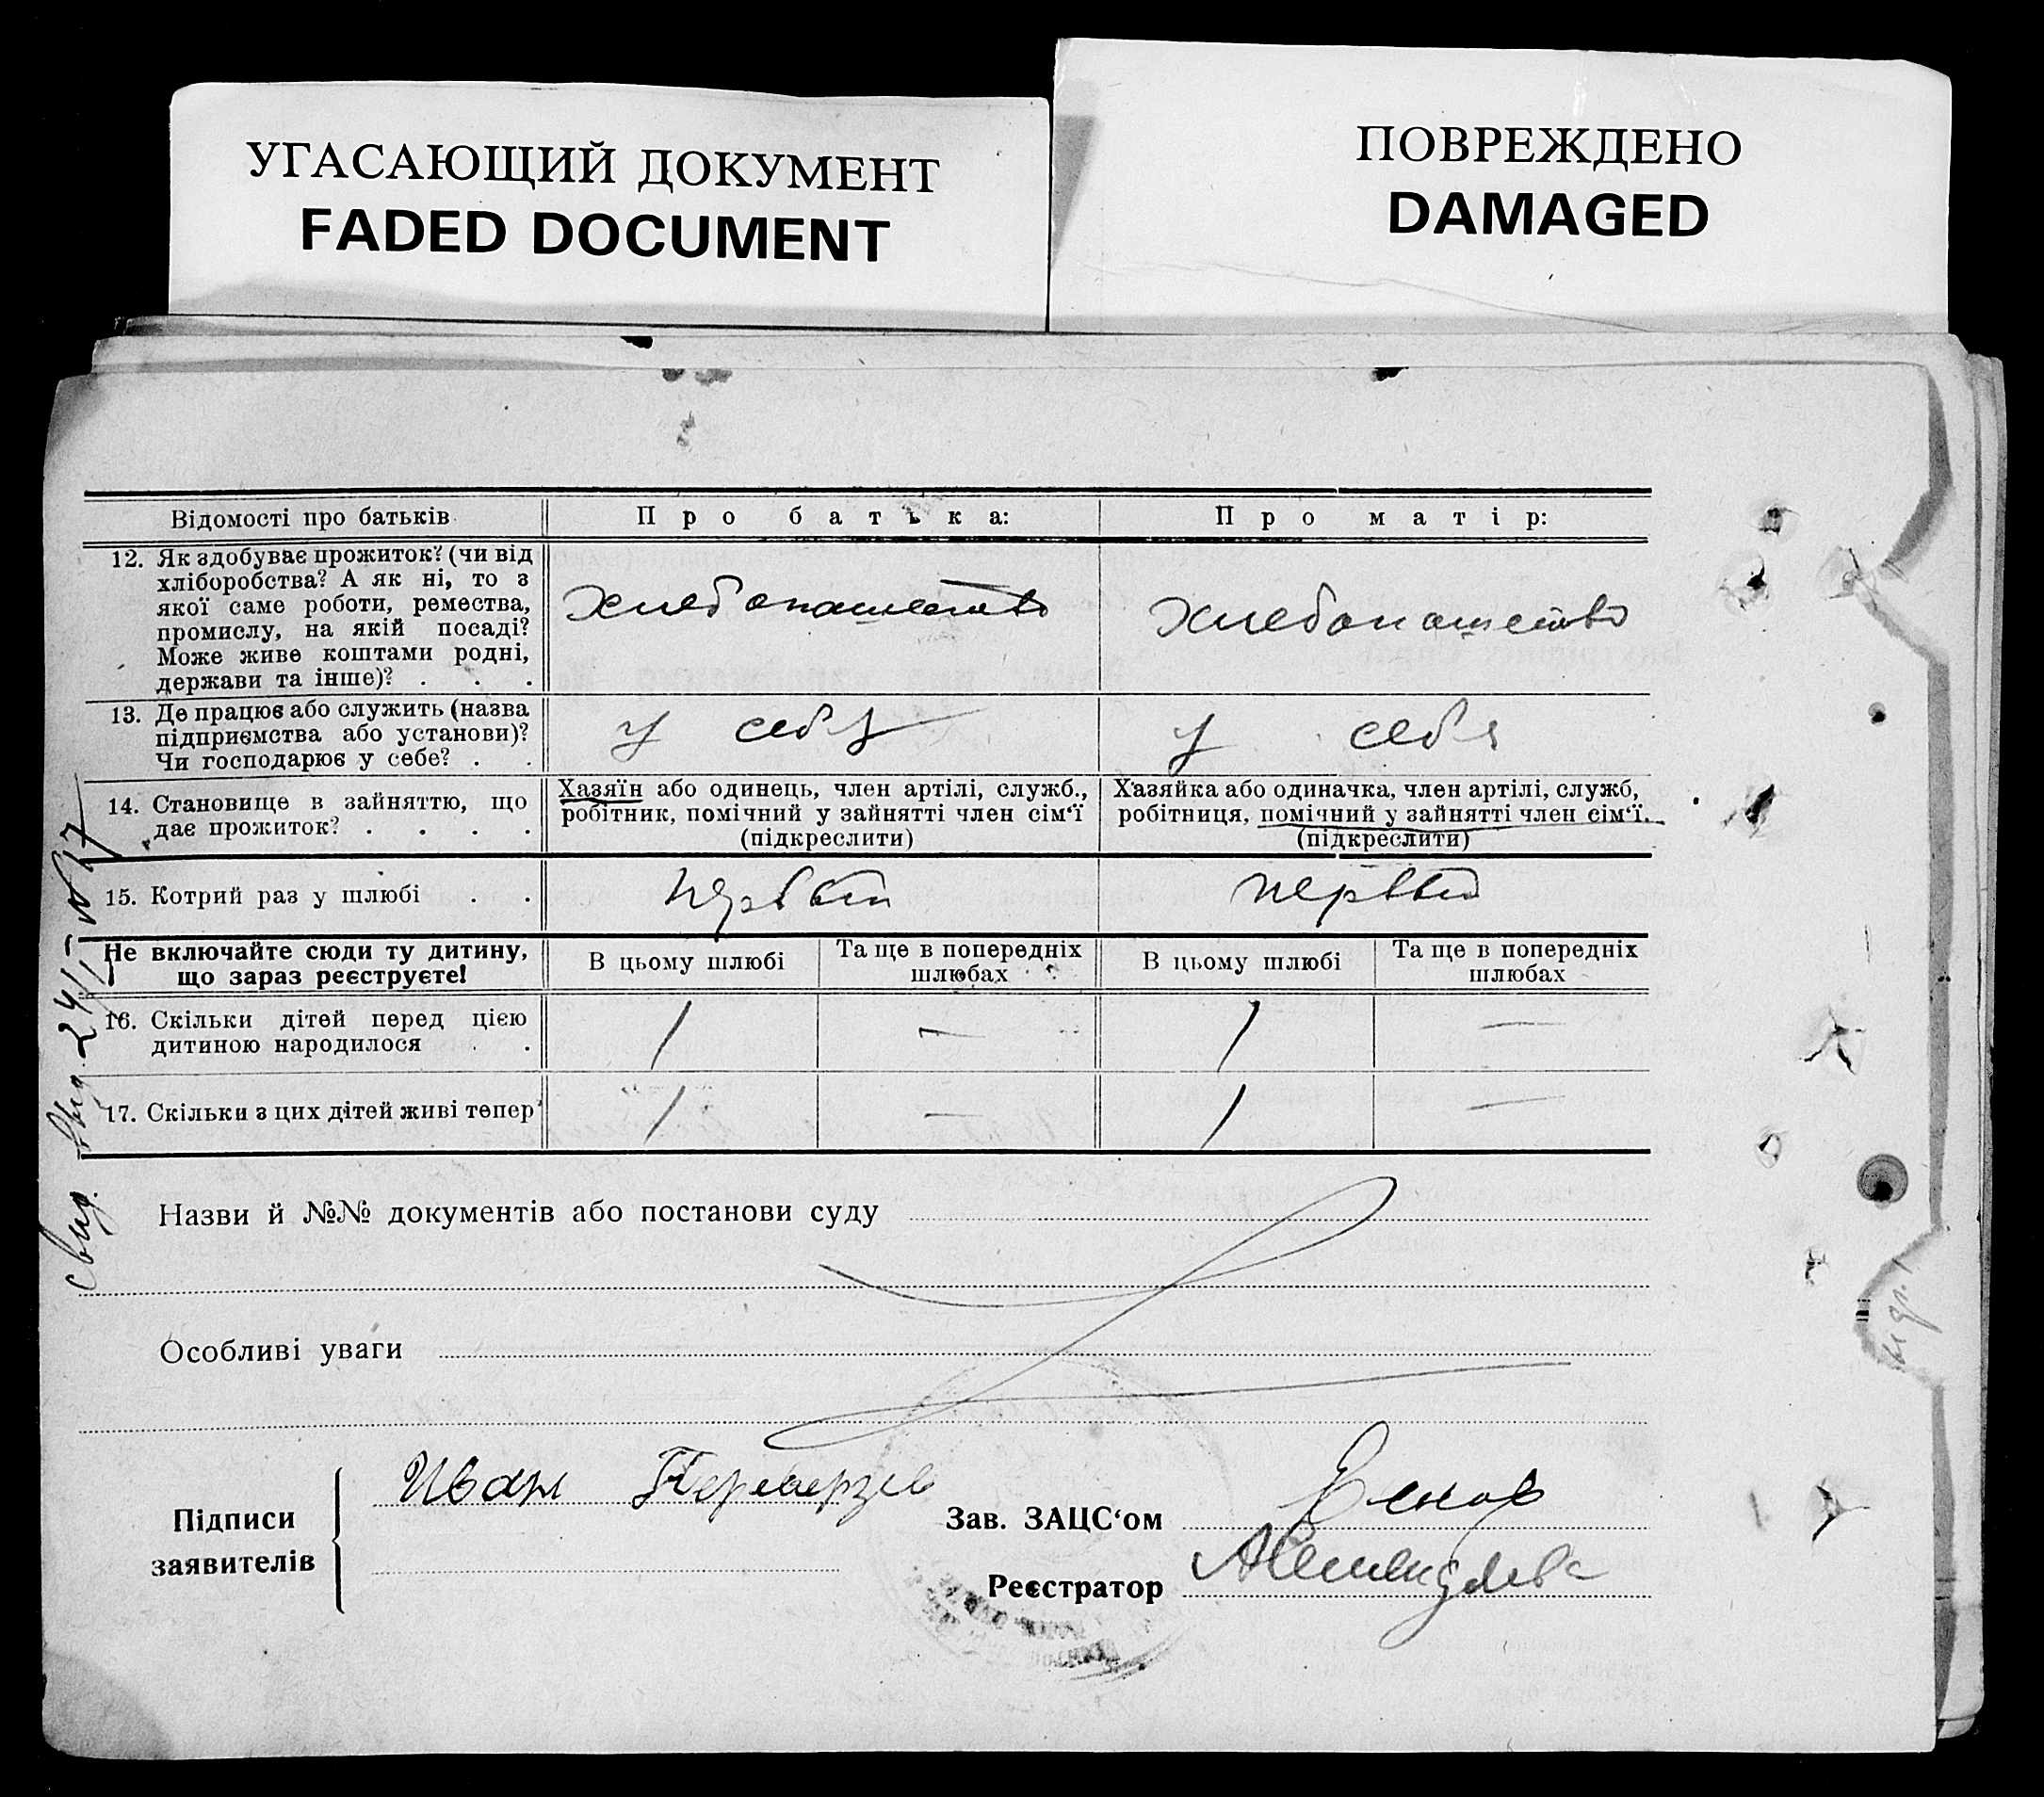 УГАСАЮЩИЙ ДОКУМЕНТ
FADED DOCUMENT
ПОВРЕЖДЕНО
DAMAGED
Відомості про батьків
Про батька:
Про матір:
12. Як здобуває прожиток? (чи від
хліборобства? А як ні, то з
якої саме роботи, ремества,
промислу, на якій посаді?
Може живе коштами родні,
держави та інше)? . . .
Хлебопашество
Хлебопашество
13. Де працює або служить (назва
підприємства або установи)?
Чи господарює у себе? . .
у себя
у себя
14. Становище в зайняттю, що
дає прожиток? . . . .
Хазяїн або одинець, член артілі, служб.,
робітник, помічний у зайнятті член сім‘ї
(підкреслити)
Хазяйка або одиначка, член артілі, служб,
робітниця, помічний у зайнятті член сім‘ї.
(підкреслити)
15. Котрий раз у шлюбі . .
первый
первый
Не включайте сюди ту дитину,
що зараз реєструєте!
В цьому шлюбі
Та ще в попередніх
шлюбах
В цьому шлюбі
Та ще в попередніх
шлюбах
16. Скільки дітей перед цією
дитиною народилося . .
1
—
1
—
17. Скільки з цих дітей живі тепер
1
—
1
—
Назви й №№ документів або постанови суду
Особливі уваги
Підписи
заявителів
Иван Переверзев
Зав. ЗАЦС‘ом
Реєстратор
свид. выд. 24/